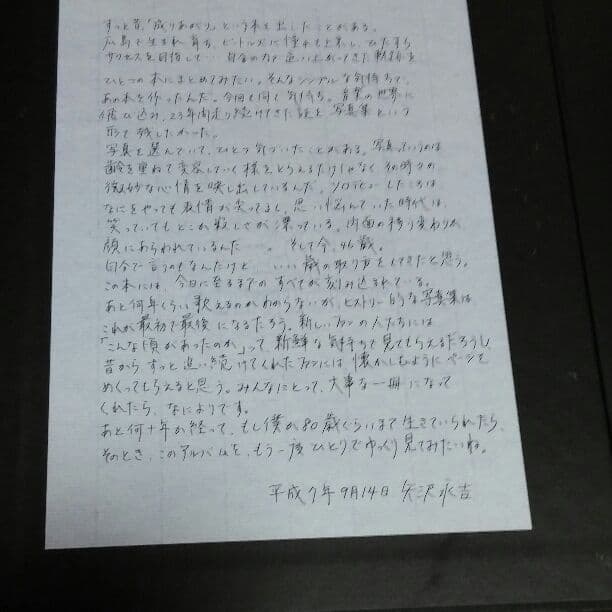 ずっと昔、「成りあがり」という本を出したことがある。
広島で生まれ育ち、ビートルズに憧れて上京し、ひたすら
サクセスを目指して… 自分の力で追い上がってきた軌跡を
ひとつの本にまとめてみたい。そんなシンプルな気持ちで、
あの本を作ったんだ。今回も同じ気持ち。音楽の世界に
飛び込み、23年間走り続けてきた証を写真集という
形で残したかった。
写真を選んでいて、ひとつ気づいたことがある。写真っていうのは
齢を重ねて変容していく様をとらえるだけじゃなく その時々の
微妙な心情を映し出しているんだ。ソロデビューしたころは
なにをやっても表情が尖ってるし、思い悩んでいた時代は、
笑っていてもどこか寂しさが漂っている。内面の移り変わりが
顔にあらわれているんだ…。そして今、46歳。
自分で言うのもなんだけど…いい歳の取り方をしてきたと思う。
この本には、今日に至るまでのすべてが刻み込まれている。
あと何年くらい歌えるのかわからないが、ヒストリー的な写真集は
これが最初で最後になるだろう。新しいファンの人たちには
「こんな頃があったのか」って、新鮮な気持ちで見てもらえるだろうし
昔からずっと追い続けてくれたファンには、懐かしむようにページを
めくってもらえると思う。みんなにとって、大事な一冊になって
くれたら、なによりです。
あと何十年か経って、もし僕が80歳くらいまで生きていられたら、
そのとき、このアルバムを、もう一度ひとりでゆっくり見てみたいね。
平成7年9月14日 矢沢永吉